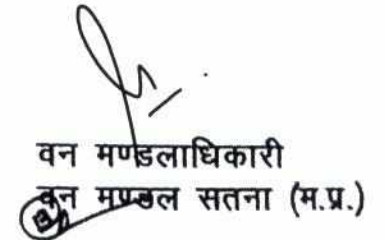 वन मण्डलाधिकारी
वन मण्डल सतना (म.प्र.)